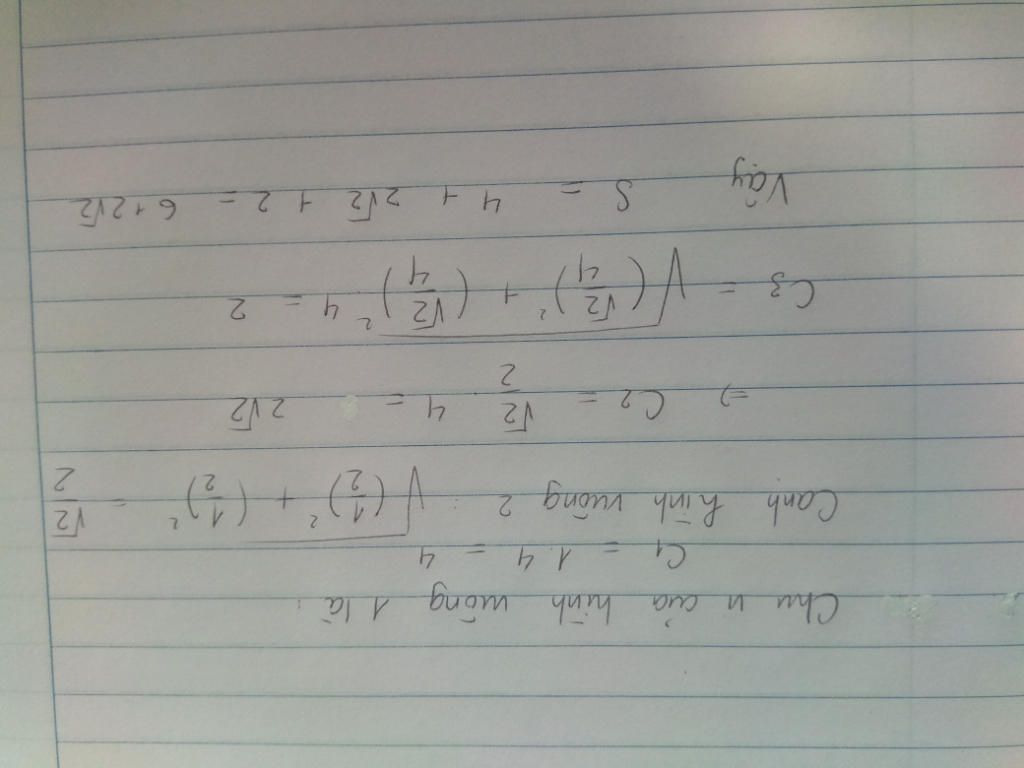 Chu vi của hình vuông 1 là :
C1 = 1.4 = 4
Cạnh hình vuông 2 : √((1/2)² + (1/2)²) = √2/2
=> C2 = √2/2 . 4 = 2√2
C3 = √((√2/4)² + (√2/4)²) . 4 = 2
Vậy S = 4 + 2√2 + 2 = 6+2√2